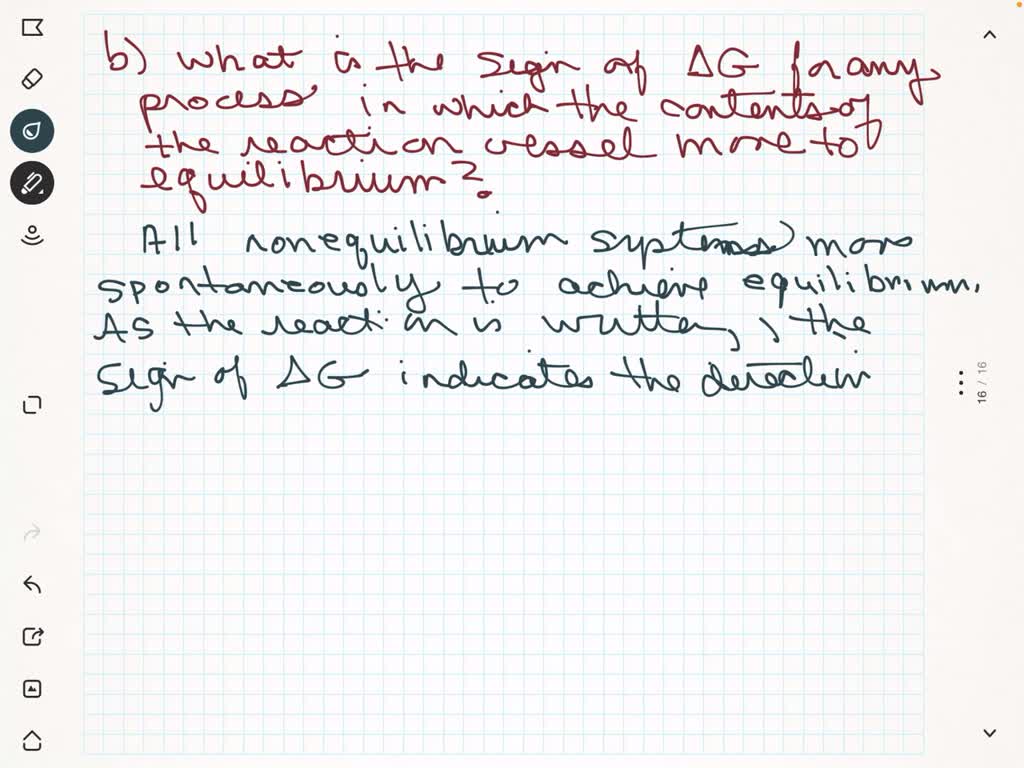 b) What is the sign of ΔG for any
process in which the contents of
the reaction vessel move to
equilibrium?
All nonequilibrium systems move
spontaneously to achieve equilibrium.
As the reaction is written, , the
sign of ΔG indicates the direction
16 / 16